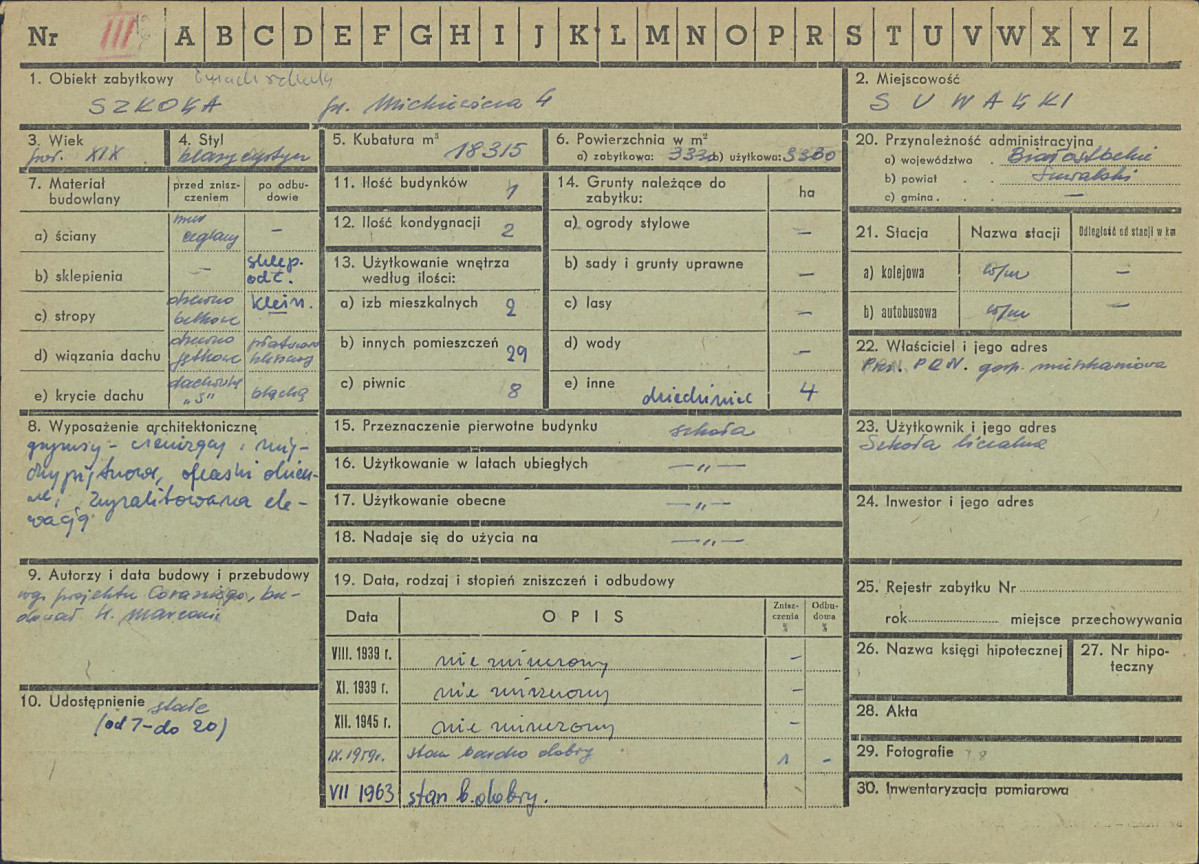 Nr III A B C D E F G H I J K L M N O P R S T U V W X Y Z
1. Obiekt zabytkowy
SZKOŁA
2. Miejscowość
SUWAŁKI
3. Wiek
XIX
4. Styl
5. Kubatura m³ 18315
6. Powierzchnia w m²
a) zabytkowa: b) użytkowa:
7. Materiał budowlany
przed zniszczeniem
po odbudowie
a) ściany mur ceglany —
b) sklepienia — sklep. odc.
c) stropy drewno belkowe klein.
d) wiązania dachu drewno
e) krycie dachu dachówka „S" blachą
8. Wyposażenie architektoniczne
gzymsy –
9. Autorzy i data budowy i przebudowy
wg. projektu Corazziego, bu-
dował H. Marconi
10. Udostępnienie stałe
(od 7 – do 20)
11. Ilość budynków 1
12. Ilość kondygnacji 2
13. Użytkowanie wnętrza według ilości:
a) izb mieszkalnych 2
b) innych pomieszczeń 29
c) piwnic 8
14. Grunty należące do zabytku: ha
a) ogrody stylowe —
b) sady i grunty uprawne —
c) lasy —
d) wody —
e) inne dziedziniec 4
15. Przeznaczenie pierwotne budynku szkoła
16. Użytkowanie w latach ubiegłych — „ —
17. Użytkowanie obecne — „ —
18. Nadaje się do użycia na — „ —
19. Data, rodzaj i stopień zniszczeń i odbudowy
Data OPIS Zniszczenia % Odbudowa %
VIII. 1939 r. nie niszczony –
XI. 1939 r. nie niszczony –
XII. 1945 r. nie niszczony –
IX. 1959 r. stan bardzo dobry 1 –
VII 1963 stan b. dobry.
20. Przynależność administracyjna
a) województwo . Białostockie
b) powiat . . Suwalski
c) gmina . . —
21. Stacja Nazwa stacji Odległość od stacji w km
a) kolejowa w/m —
b) autobusowa w/m —
22. Właściciel i jego adres
PRN. gosp. mieszkaniowa
23. Użytkownik i jego adres
Szkoła licealna
24. Inwestor i jego adres
25. Rejestr zabytku Nr
rok miejsce przechowywania
26. Nazwa księgi hipotecznej
27. Nr hipoteczny
28. Akta
29. Fotografie
30. Inwentaryzacja pomiarowa